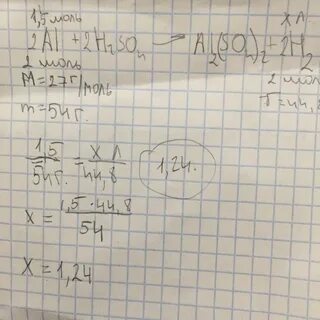 1,5 моль x л
2Al + 2H2SO4 → Al2(SO4)2 + 2H2
2 моль 2 моль
M = 27 г/моль V = 44,8
m = 54 г.
1,5/54 г. = x л/44,8 1,24.
x = 1,5·44,8/54
x = 1,24